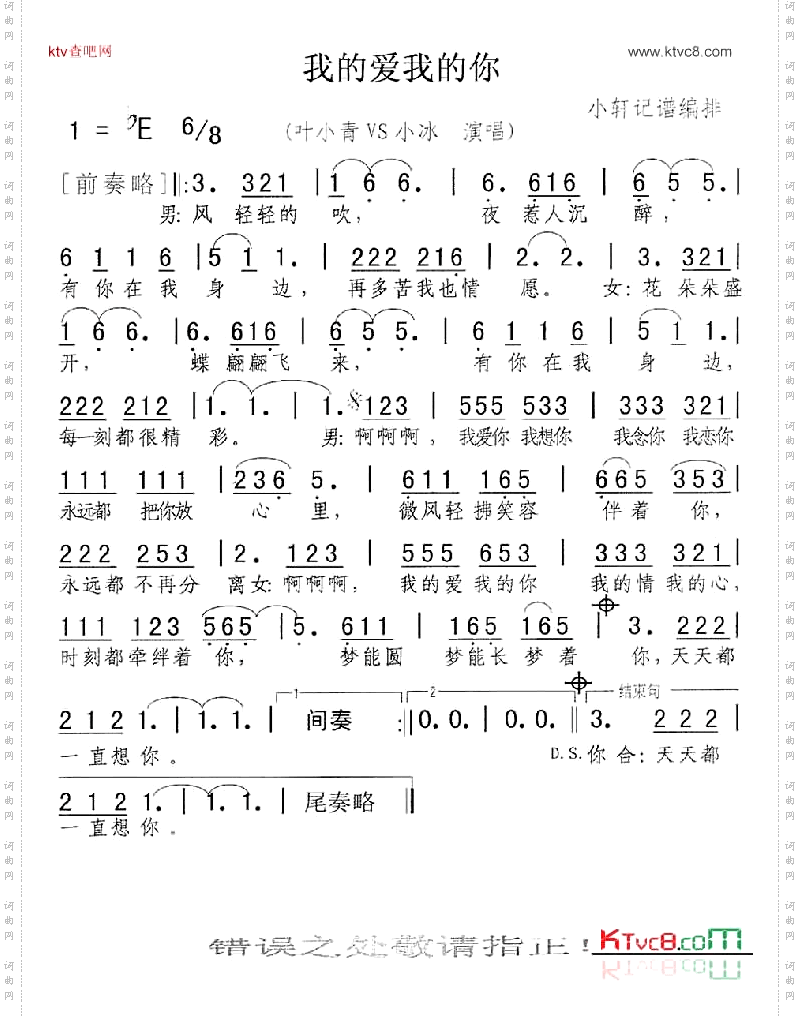 ktv查吧网
www.ktvc8.com
我的爱我的你
小轩记谱编排
1 = ♭E 6/8
(叶小青VS小冰 演唱)
[前奏略]‖:3. 321 |1 6 6. |6. 616 |6 5 5. |
男:风 轻轻的 吹, 夜 惹人沉 醉,
6 1 1 6 |5 1 1. |222 216 |2. 2. |3. 321 |
有你在我 身 边, 再多苦我也情 愿。 女:花 朵朵盛
1 6 6. |6. 616 |6 5 5. |6 1 1 6 |5 1 1. |
开, 蝶 翩翩飞 来, 有你在我 身 边,
222 212 |1. 1. | 1. 123 | 555 533 | 333 321 |
每一刻都很精 彩。 男:啊啊啊, 我爱你 我想你 我念你 我恋你
111 111 |236 5. | 611 165 | 665 353 |
永远都 把你放 心 里, 微风轻 拂笑容 伴着 你,
222 253 |2. 123 | 555 653 |333 321 |
永远都 不再分 离女:啊啊啊, 我的爱 我的你 我的情 我的心,
111 123 565 |5. 611 |165 165 | 3. 222 |
时刻都牵绊着 你, 梦能圆 梦能长 梦着 你,天天都
2 1 2 1. |1. 1. | 1 间奏 :‖ 2 0.0.| 0.0. ‖ 结束句 3. 222 |
一直想你。 D.S.你 合:天天都
2 1 2 1. |1. 1. | 尾奏略 ‖
一直想你。
错误之处敬请指正!
KTvc8.com
词曲网